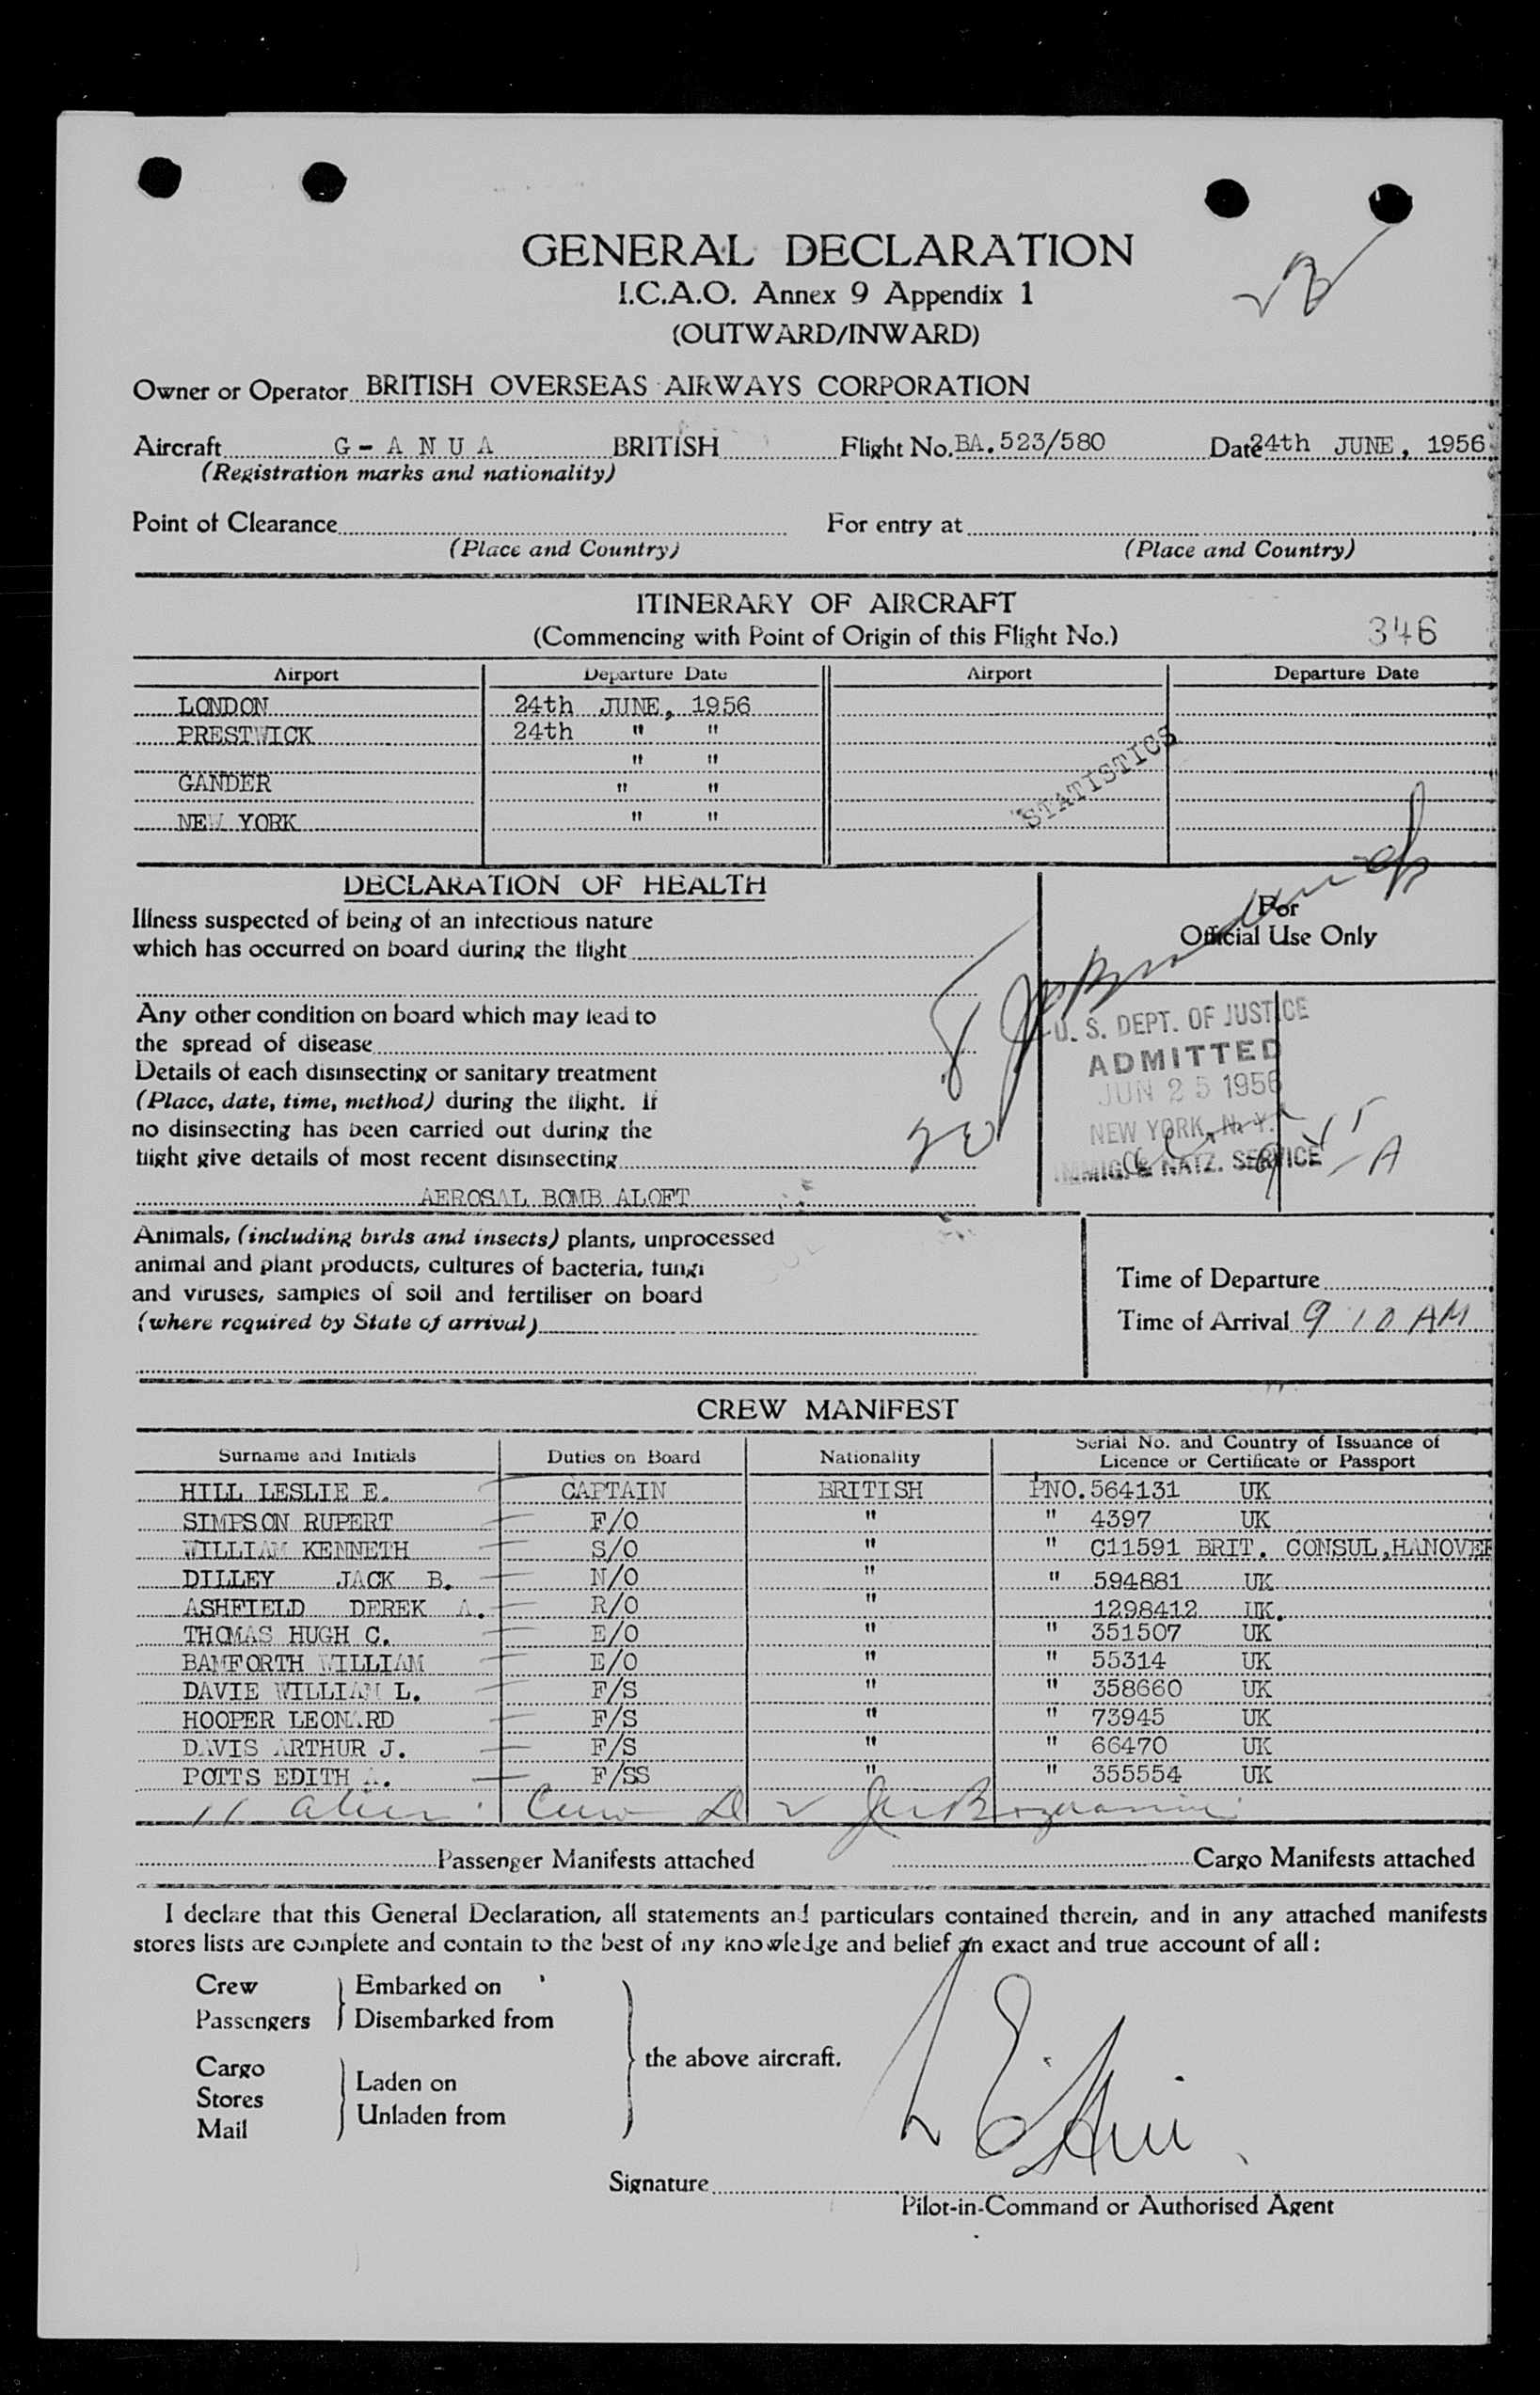 GENERAL DECLARATION
I.C.A.O. Annex 9 Appendix 1
(OUTWARD/INWARD)
Owner or Operator BRITISH OVERSEAS AIRWAYS CORPORATION
Aircraft G-ANUA BRITISH Flight No. BA.523/580 Date 24th JUNE, 1956
(Registration marks and nationality)
Point of Clearance For entry at
(Place and Country) (Place and Country)
ITINERARY OF AIRCRAFT
(Commencing with Point of Origin of this Flight No.) 346
Airport Departure Date Airport Departure Date
LONDON 24th JUNE, 1956
PRESTWICK 24th " "
" "
GANDER " "
NEW YORK " "
STATISTICS
DECLARATION OF HEALTH
For
Official Use Only
Illness suspected of being of an infectious nature
which has occurred on board during the flight
Any other condition on board which may lead to
the spread of disease
Details of each disinsecting or sanitary treatment
(Place, date, time, method) during the flight. If
no disinsecting has been carried out during the
flight give details of most recent disinsecting
AEROSAL BOMB ALOFT
U. S. DEPT. OF JUSTICE
ADMITTED
JUN 25 1956
NEW YORK, N. Y.
IMMIG. & NATZ. SERVICE
Animals, (including birds and insects) plants, unprocessed
animal and plant products, cultures of bacteria, fungi
and viruses, samples of soil and fertiliser on board
(where required by State of arrival)
Time of Departure
Time of Arrival 9 10 AM
CREW MANIFEST
Surname and Initials Duties on Board Nationality Serial No. and Country of Issuance of Licence or Certificate or Passport
HILL LESLIE E. CAPTAIN BRITISH PNO.564131 UK
SIMPSON RUPERT F/O " " 4397 UK
WILLIAM KENNETH S/O " " C11591 BRIT. CONSUL,HANOVER
DILLEY JACK B. N/O " " 594881 UK
ASHFIELD DEREK A. R/O " 1298412 UK.
THOMAS HUGH C. E/O " " 351507 UK
BAMFORTH WILLIAM E/O " " 55314 UK
DAVIE WILLIAM L. F/S " " 358660 UK
HOOPER LEONARD F/S " " 73945 UK
DAVIS ARTHUR J. F/S " " 66470 UK
POTTS EDITH A. F/SS " " 355554 UK
11 alien Crew
Passenger Manifests attached Cargo Manifests attached
I declare that this General Declaration, all statements and particulars contained therein, and in any attached manifests
stores lists are complete and contain to the best of my knowledge and belief an exact and true account of all:
Crew Embarked on
Passengers Disembarked from
the above aircraft.
Cargo
Stores Laden on
Mail Unladen from
Signature
Pilot-in-Command or Authorised Agent